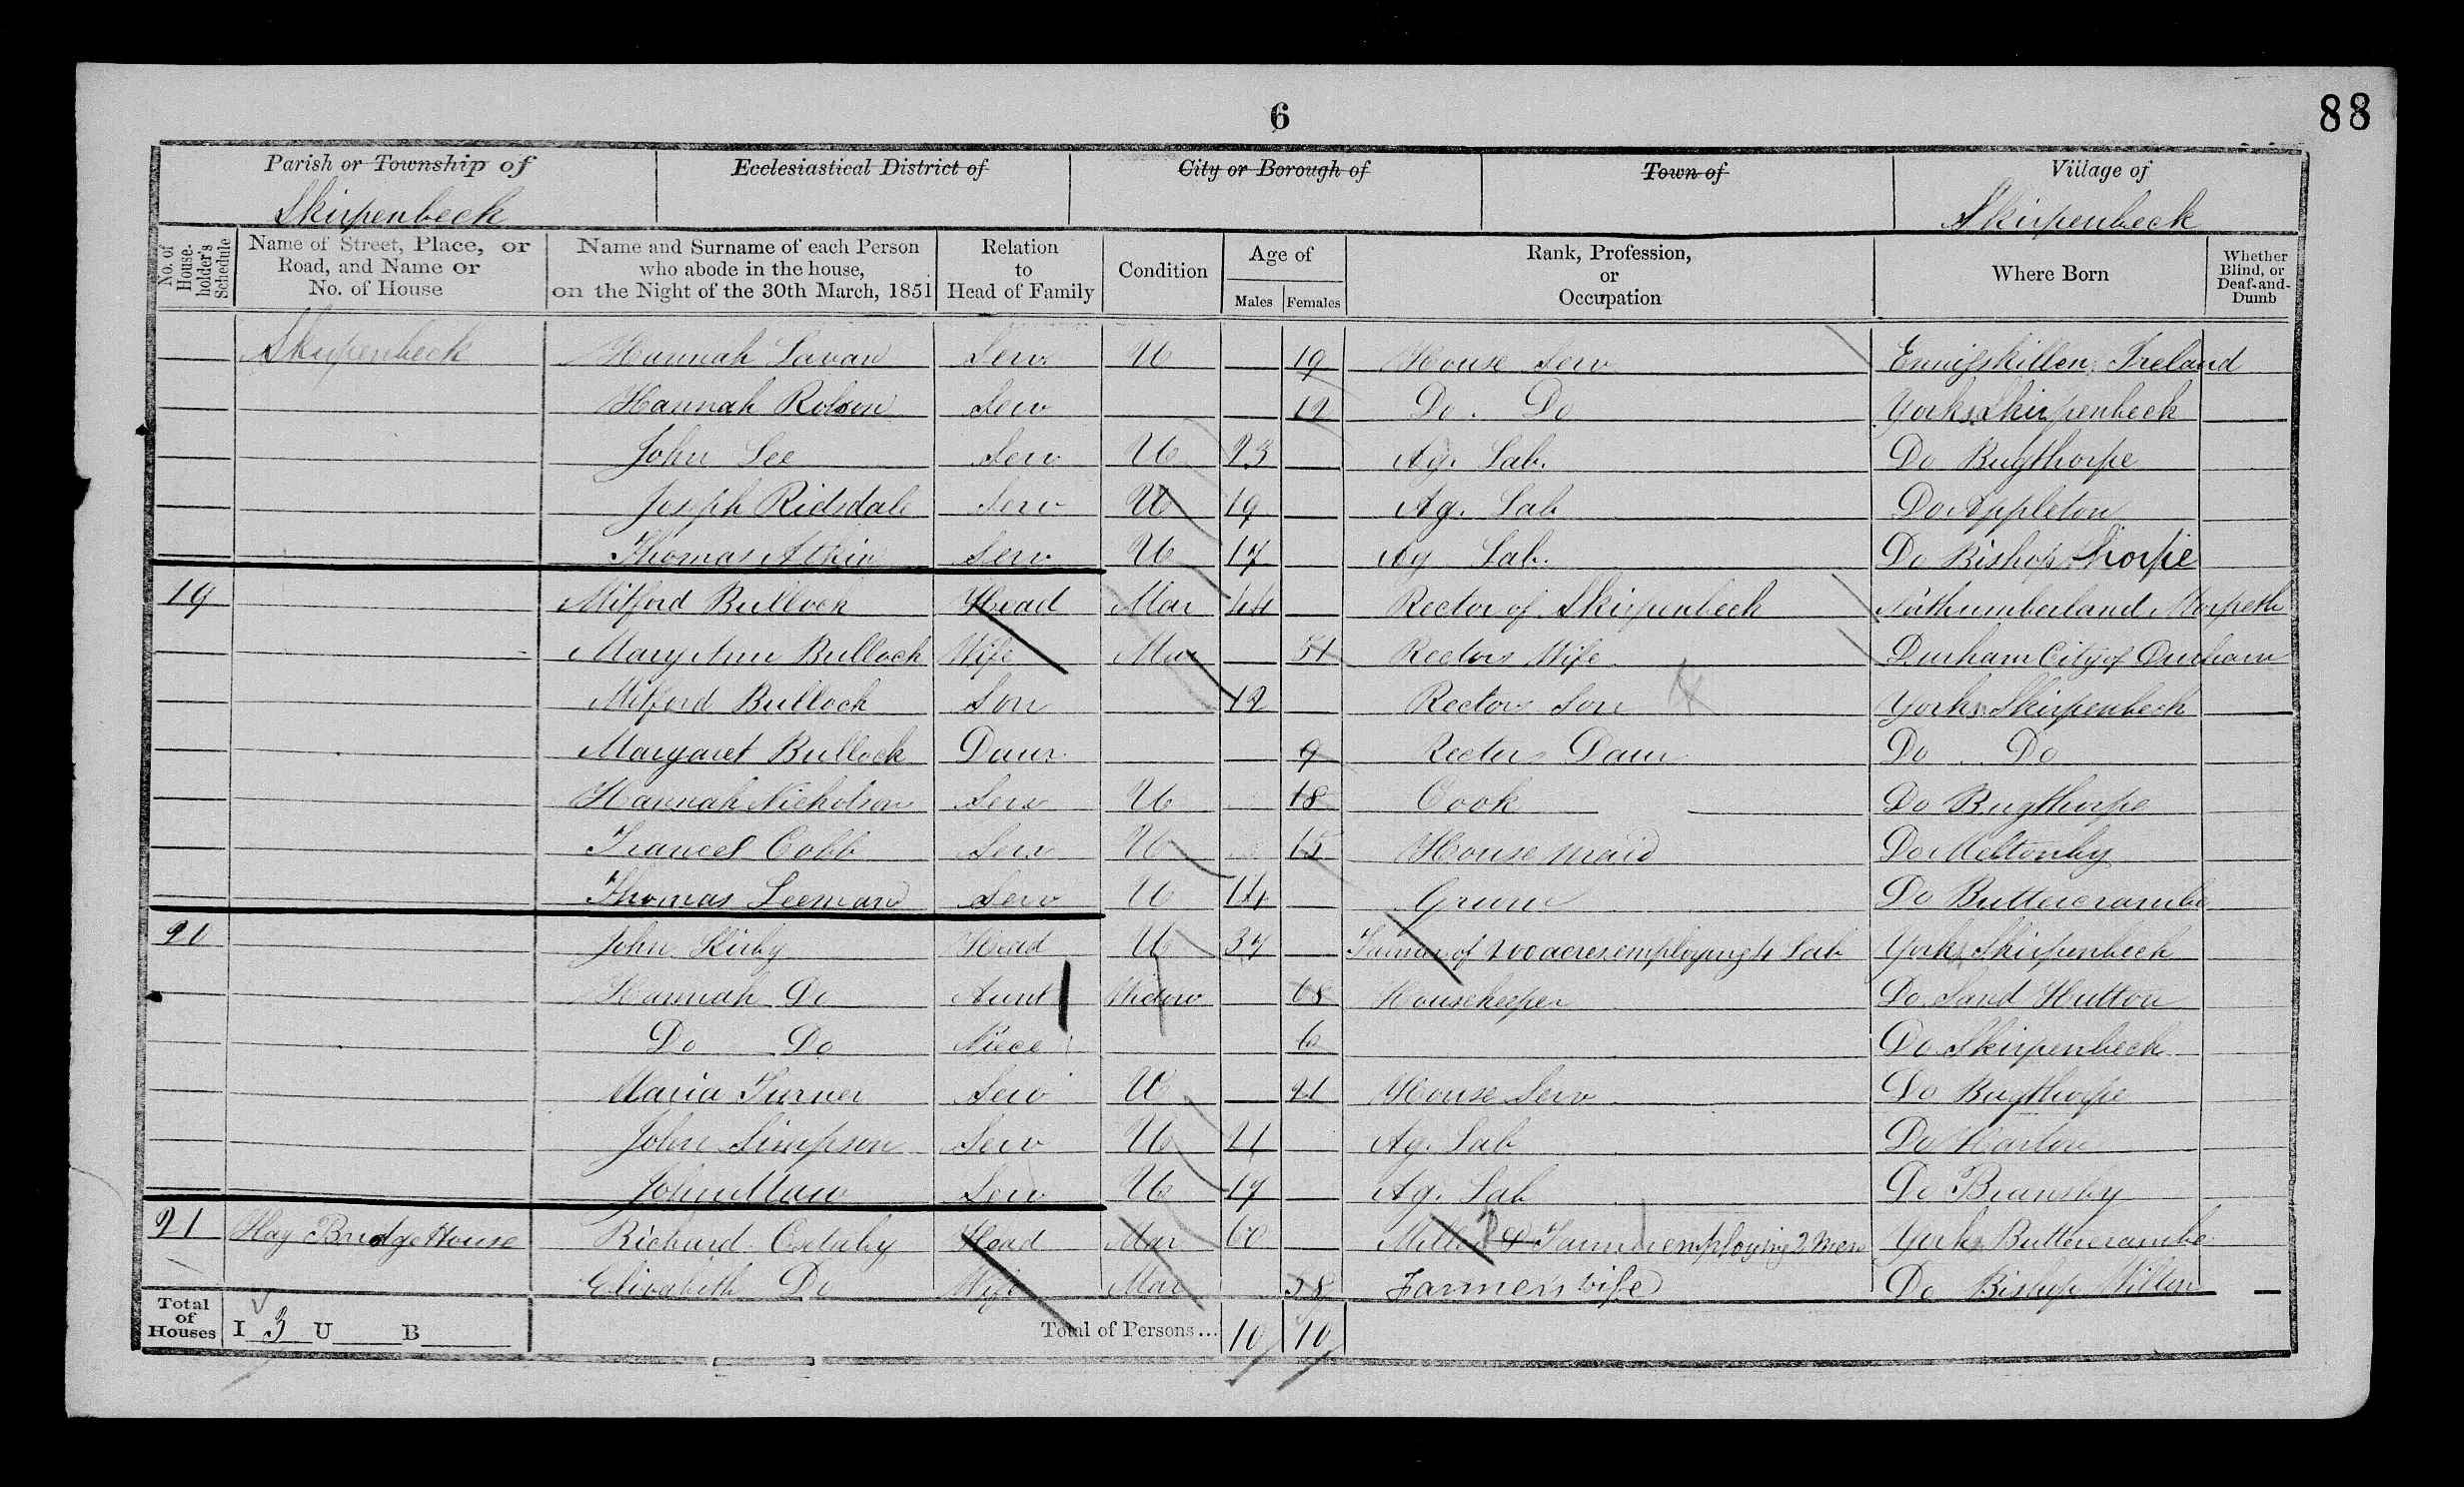 6
88
Parish or Township of
Skirpenbeck
Ecclesiastical District of
City or Borough of
Town of
Village of
Skirpenbeck
No. of House-holder's Schedule
Name of Street, Place, or Road, and Name or No. of House
Name and Surname of each Person who abode in the house, on the Night of the 30th March, 1851
Relation to Head of Family
Condition
Age of
Males
Females
Rank, Profession, or Occupation
Where Born
Whether Blind, or Deaf-and-Dumb
Skirpenbeck Hannah Lavan Serv. U 19 House Serv Ennigskillen Ireland
Hannah Robson Serv 12 Do. Do Yorks Skirpenbeck
John Lee Serv U 23 Ag. Lab. Do Bugthorpe
Joseph Ridsdale Serv U 19 Ag. Lab Do Appleton
Thomas Atkin Serv U 17 Ag Lab. Do Bishopthorpe
19 Mitford Bullock Head Mar 44 Rector of Skirpenbeck Northumberland Morpeth
Mary Ann Bullock Wife Mar 51 Rectors Wife Durham City of Durham
Mitford Bullock Son 12 Rectors Son Yorks Skirpenbeck
Margaret Bullock Daur 9 Rectors Daur Do Do
Hannah Nicholson Serv U 18 Cook Do Bugthorpe
Frances Cobb Serv U 15 House maid Do Meltonby
Thomas Leeman Serv U 14 Groom Do Buttercrambe
20 John Kirby Head U 37 Farmer of 200 acres employing 4 Lab Yorks Skirpenbeck
Hannah Do Aunt Widow 68 Housekeeper Do Sand Hutton
Do Do Niece 6 Do Skirpenbeck
Maria Turner Serv U 21 House Serv Do Bugthorpe
John Simpson Serv U 21 Ag. Lab Do Harton
John Maw Serv U 17 Ag. Lab Do Bransby
21 Hag Bridge House Richard Head Mar 60 Miller & Farmer employing 2 Men Yorks Buttercrambe
Elizabeth Do Wife Mar 58 Farmers wife Do Bishop Wilton
Total of Houses I 3 U B Total of Persons... 10 10